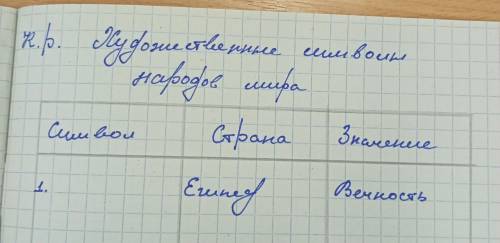 к.р. Художественные символы
народов мира
Символ Страна Значение
1. Египед Вечность